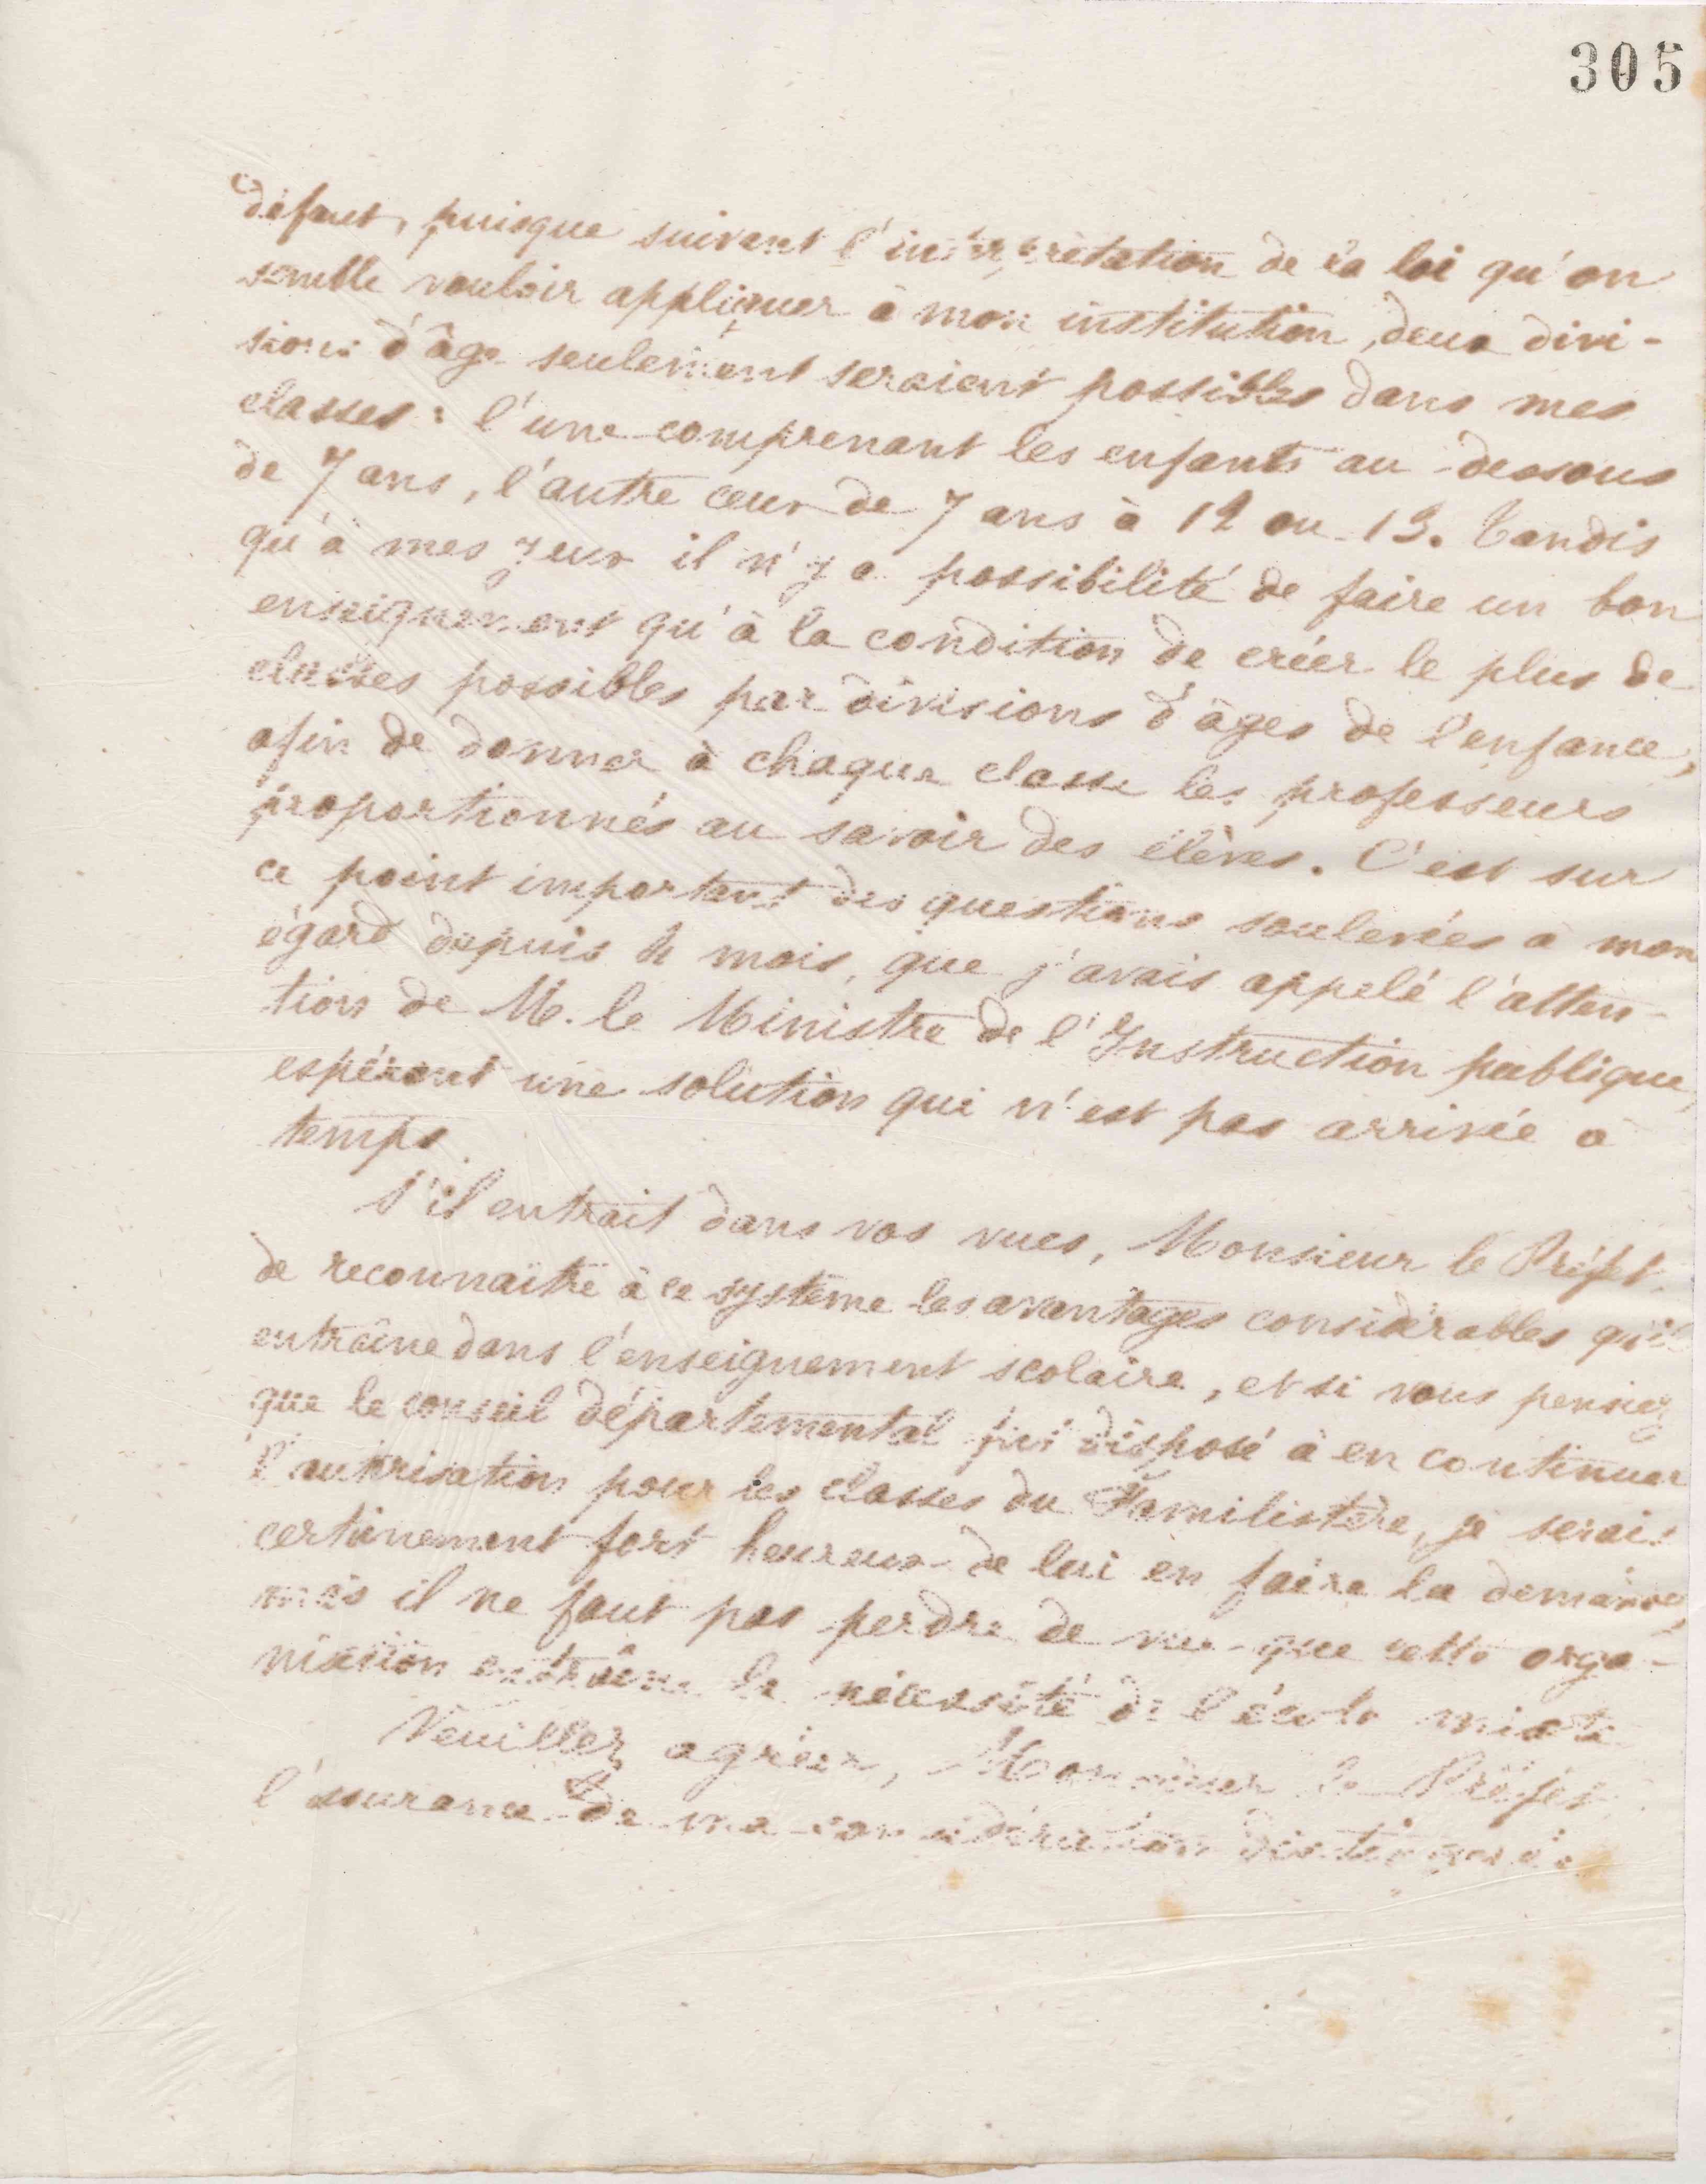 305
défaut, puisque suivant l'interprétation de la loi qu'on
semble vouloir appliquer à mon institution, deux divi-
sions d'âge seulement seraient possibles dans mes
classes : l'une comprenant les enfants au-dessous
de 7 ans, l'autre ceux de 7 ans à 12 ou 13. Tandis
qu'à mes yeux il n'y a possibilité de faire un bon
enseignement qu'à la condition de créer le plus de
classes possibles par divisions d'âges de l'enfance,
afin de donner à chaque classe les professeurs
proportionnés au savoir des élèves. C'est sur
ce point important des questions soulevées à mon
égard depuis 4 mois, que j'avais appelé l'atten-
tion de M. le Ministre de l'Instruction publique,
espérant une solution qui n'est pas arrivée à
temps.
S'il entrait dans vos vues, Monsieur le Préfet,
de reconnaître à ce système les avantages considérables qu'il
entraîne dans l'enseignement scolaire, et si vous pensiez
que le conseil départemental fut disposé à en continuer
l'autorisation pour les classes du Familistère, je serais
certainement fort heureux de lui en faire la demande,
mais il ne faut pas perdre de vue que cette orga-
nisation entraîne la nécessité de l'école mixte
Veuillez agréer, Monsieur le Préfet
l'assurance de ma considération distinguée